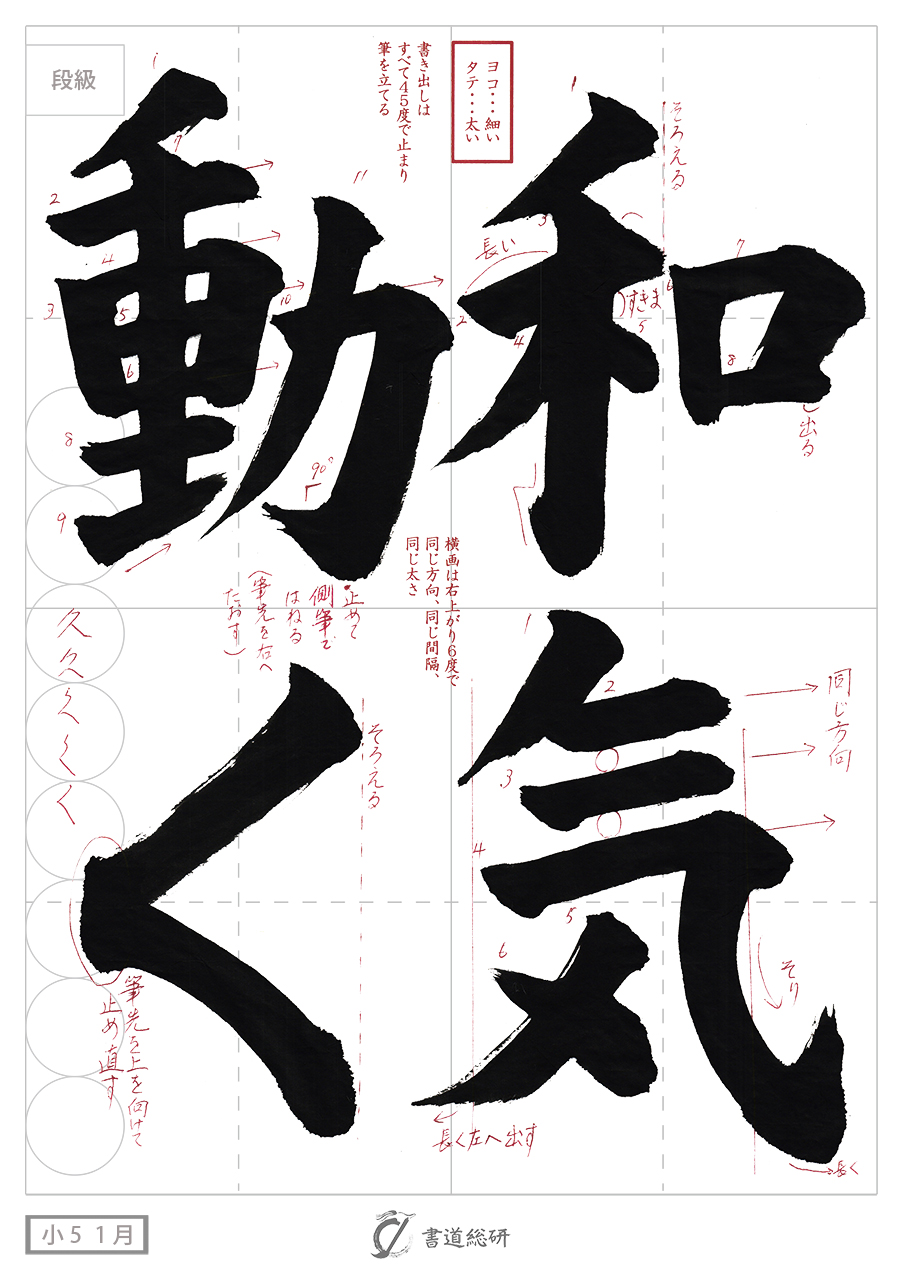 和気
動く
段級
ヨコ・・・細い
タテ・・・太い
書き出しは
すべて45度で止まり
筆を立てる
そろえる
長い
すきま
出る
1
2
3
4
5
6
7
8
横画は右上がり6度で
同じ方向、同じ間隔、
同じ太さ
同じ方向
そり
長く
長く左へ出す
1
2
3
4
5
6
1
2
3
4
5
6
7
8
9
10
11
90°
止めて
側筆で
はねる
(筆先を右へ
たおす)
そろえる
久
く
く
く
く
筆先を上を向けて
止め直す
小5 1月
書道総研